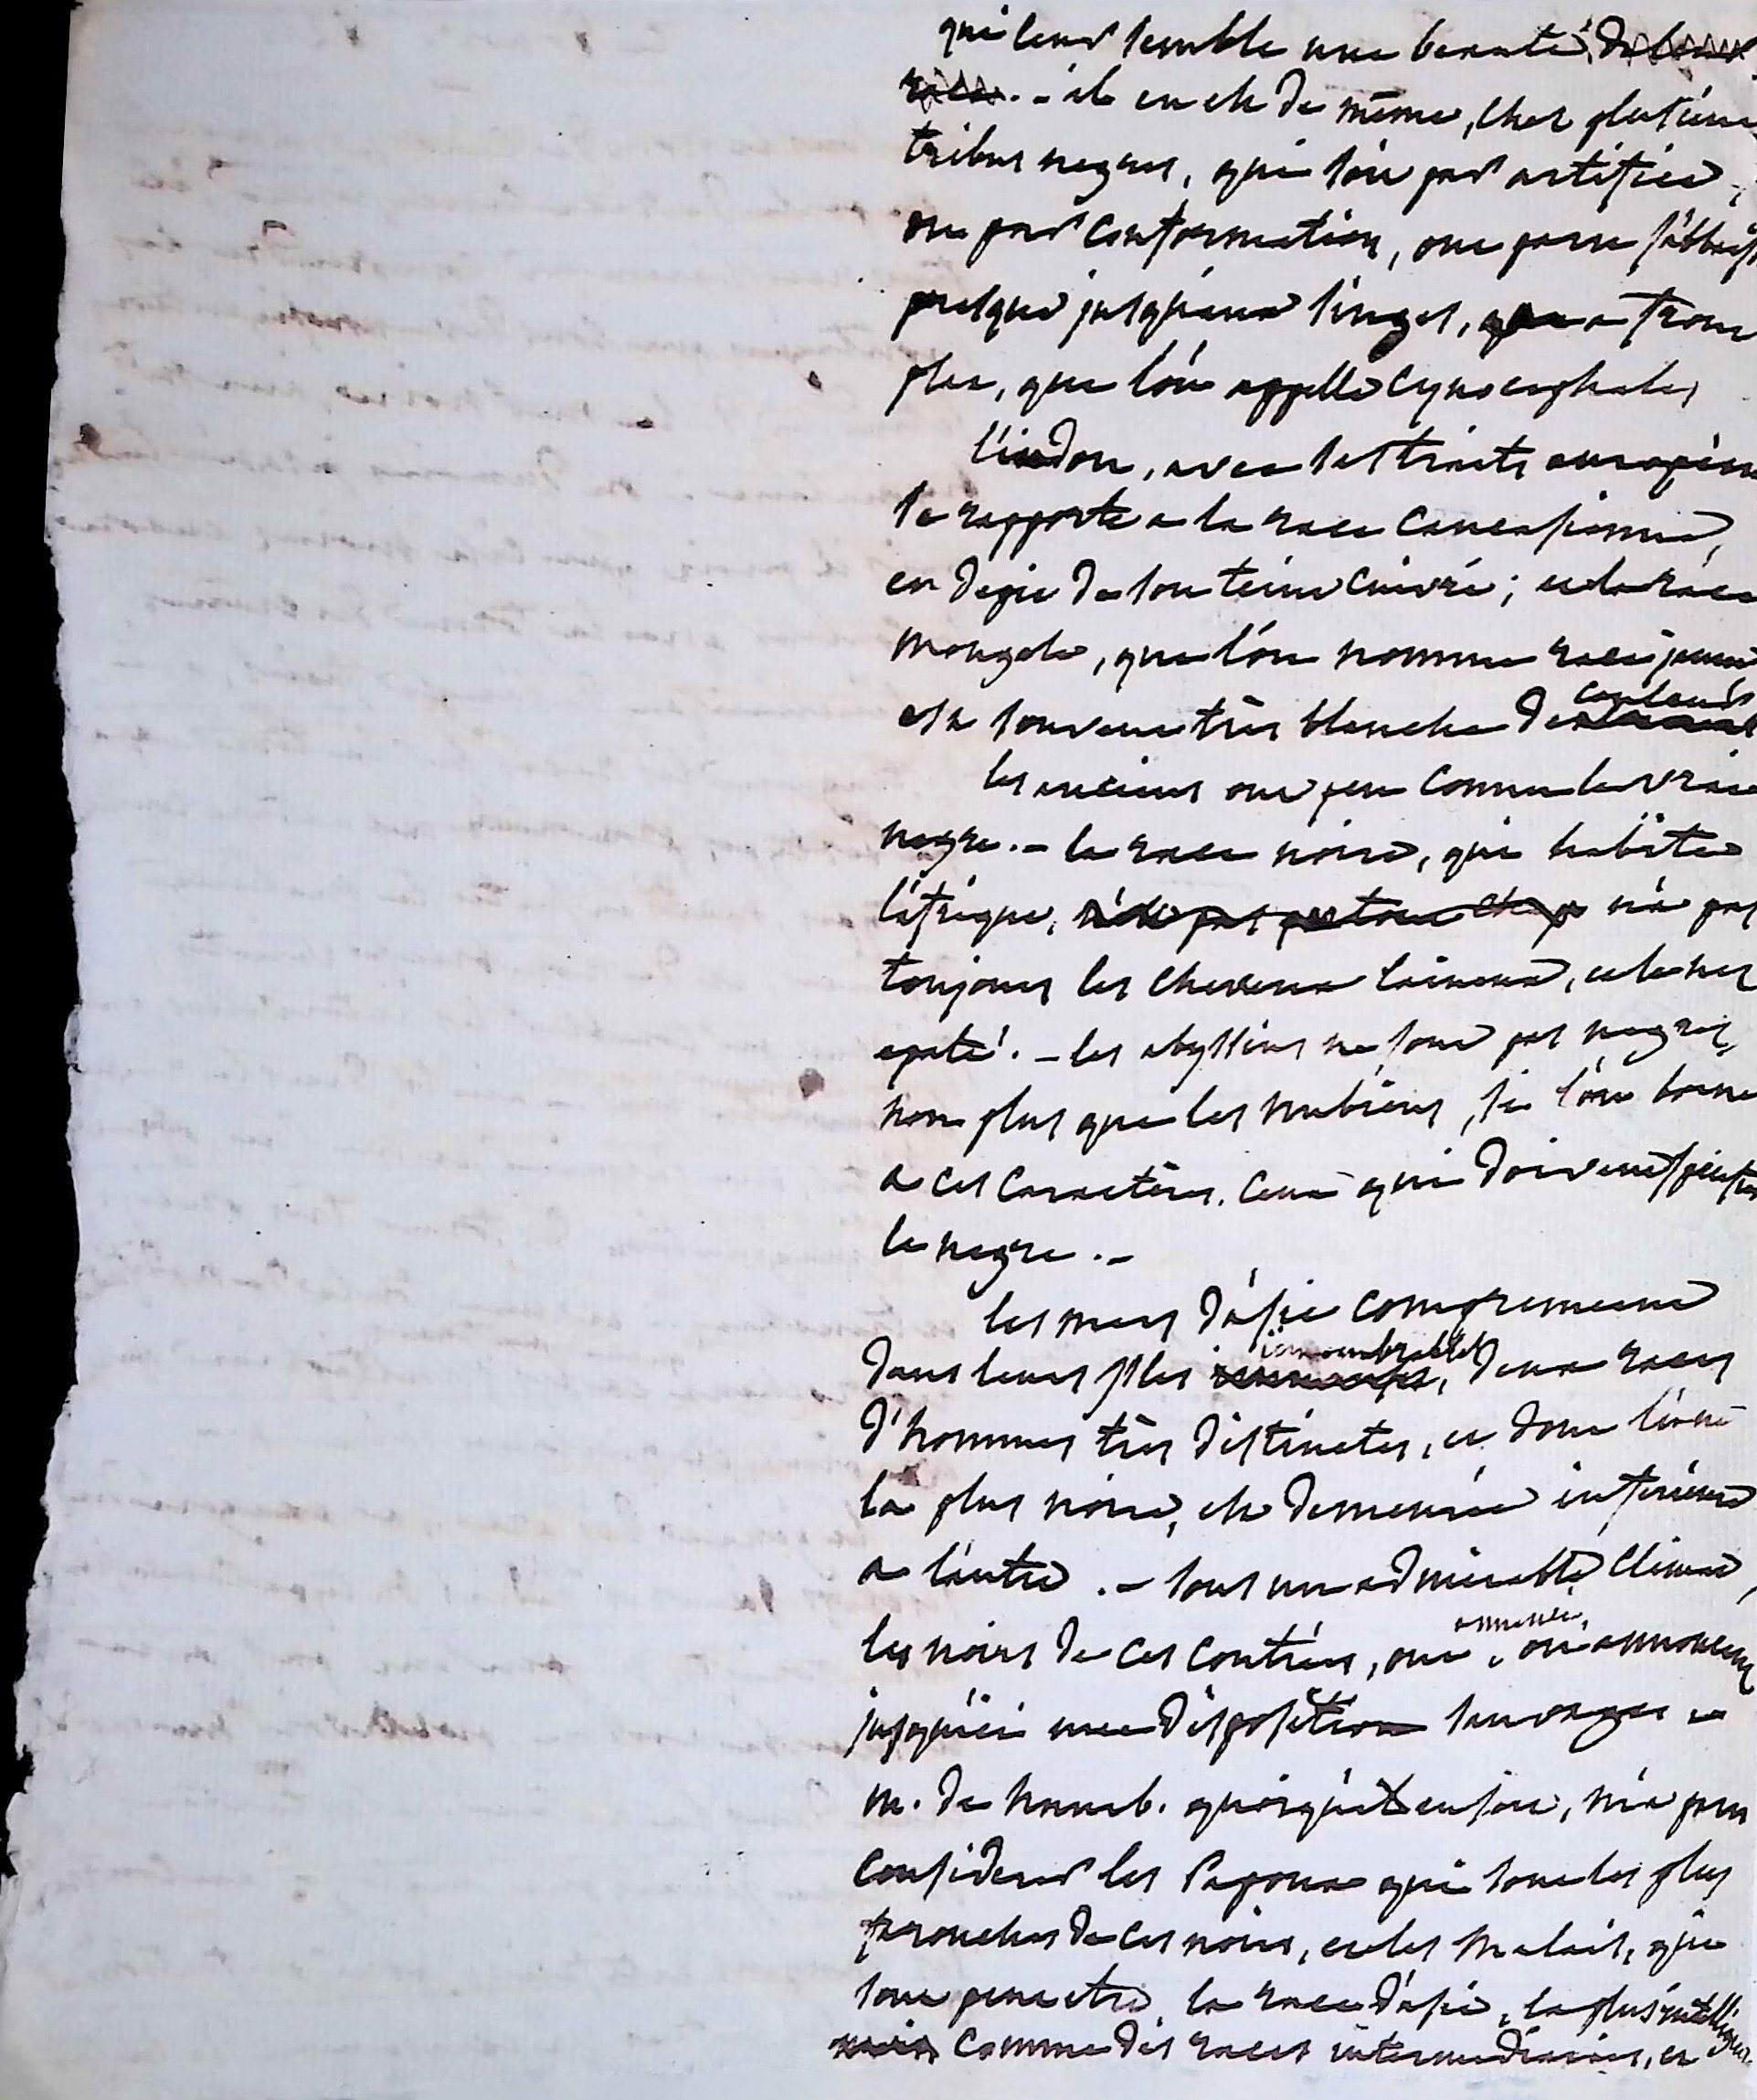 qui leur semble une beauté, de leur
race. - il en est de même, chez plusieurs
tribus negres, qui soit par artifice,
ou par conformation, ont paru s'abbaisser
presque jusqu'aux singes, a front
plat, que l'on appelle cynocephales
l'indou, avec ses traits européens
se rapporte a la race caucasienne,
en depit de son teint cuivré; et la race
mongole, que l'on nomme race jaune
est souvent très blanche de couleur
les anciens ont peu connu le vrai
negre. - la race noire, qui habite
l'afrique, n'est pas partout n'a pas
toujours les cheveux laineux, et le nez
epaté. - les abyssins ne sont pas negres,
non plus que les nubiens, si l'on borne
a ces caractères, ceux qui doivent
le negre. -
les mers d'asie comprennent
dans leurs isles innombrables, deux races
d'hommes très distinctes, et dont l'une
la plus noire, est demeurée inferieure
a l'autre. - sous un admirable climat,
les noirs de ces contrées, ont annoncé, ont annoncé
jusqu'ici une disposition sauvage et
m. de humb. quoiqu'il en soit, n'a pu
considerer les Papoux qui sont les plus
prouches de ces noirs, et les malais, qui
sont peut etre la race d'asie, la plus intelligente
mais comme des races intermediaires, et